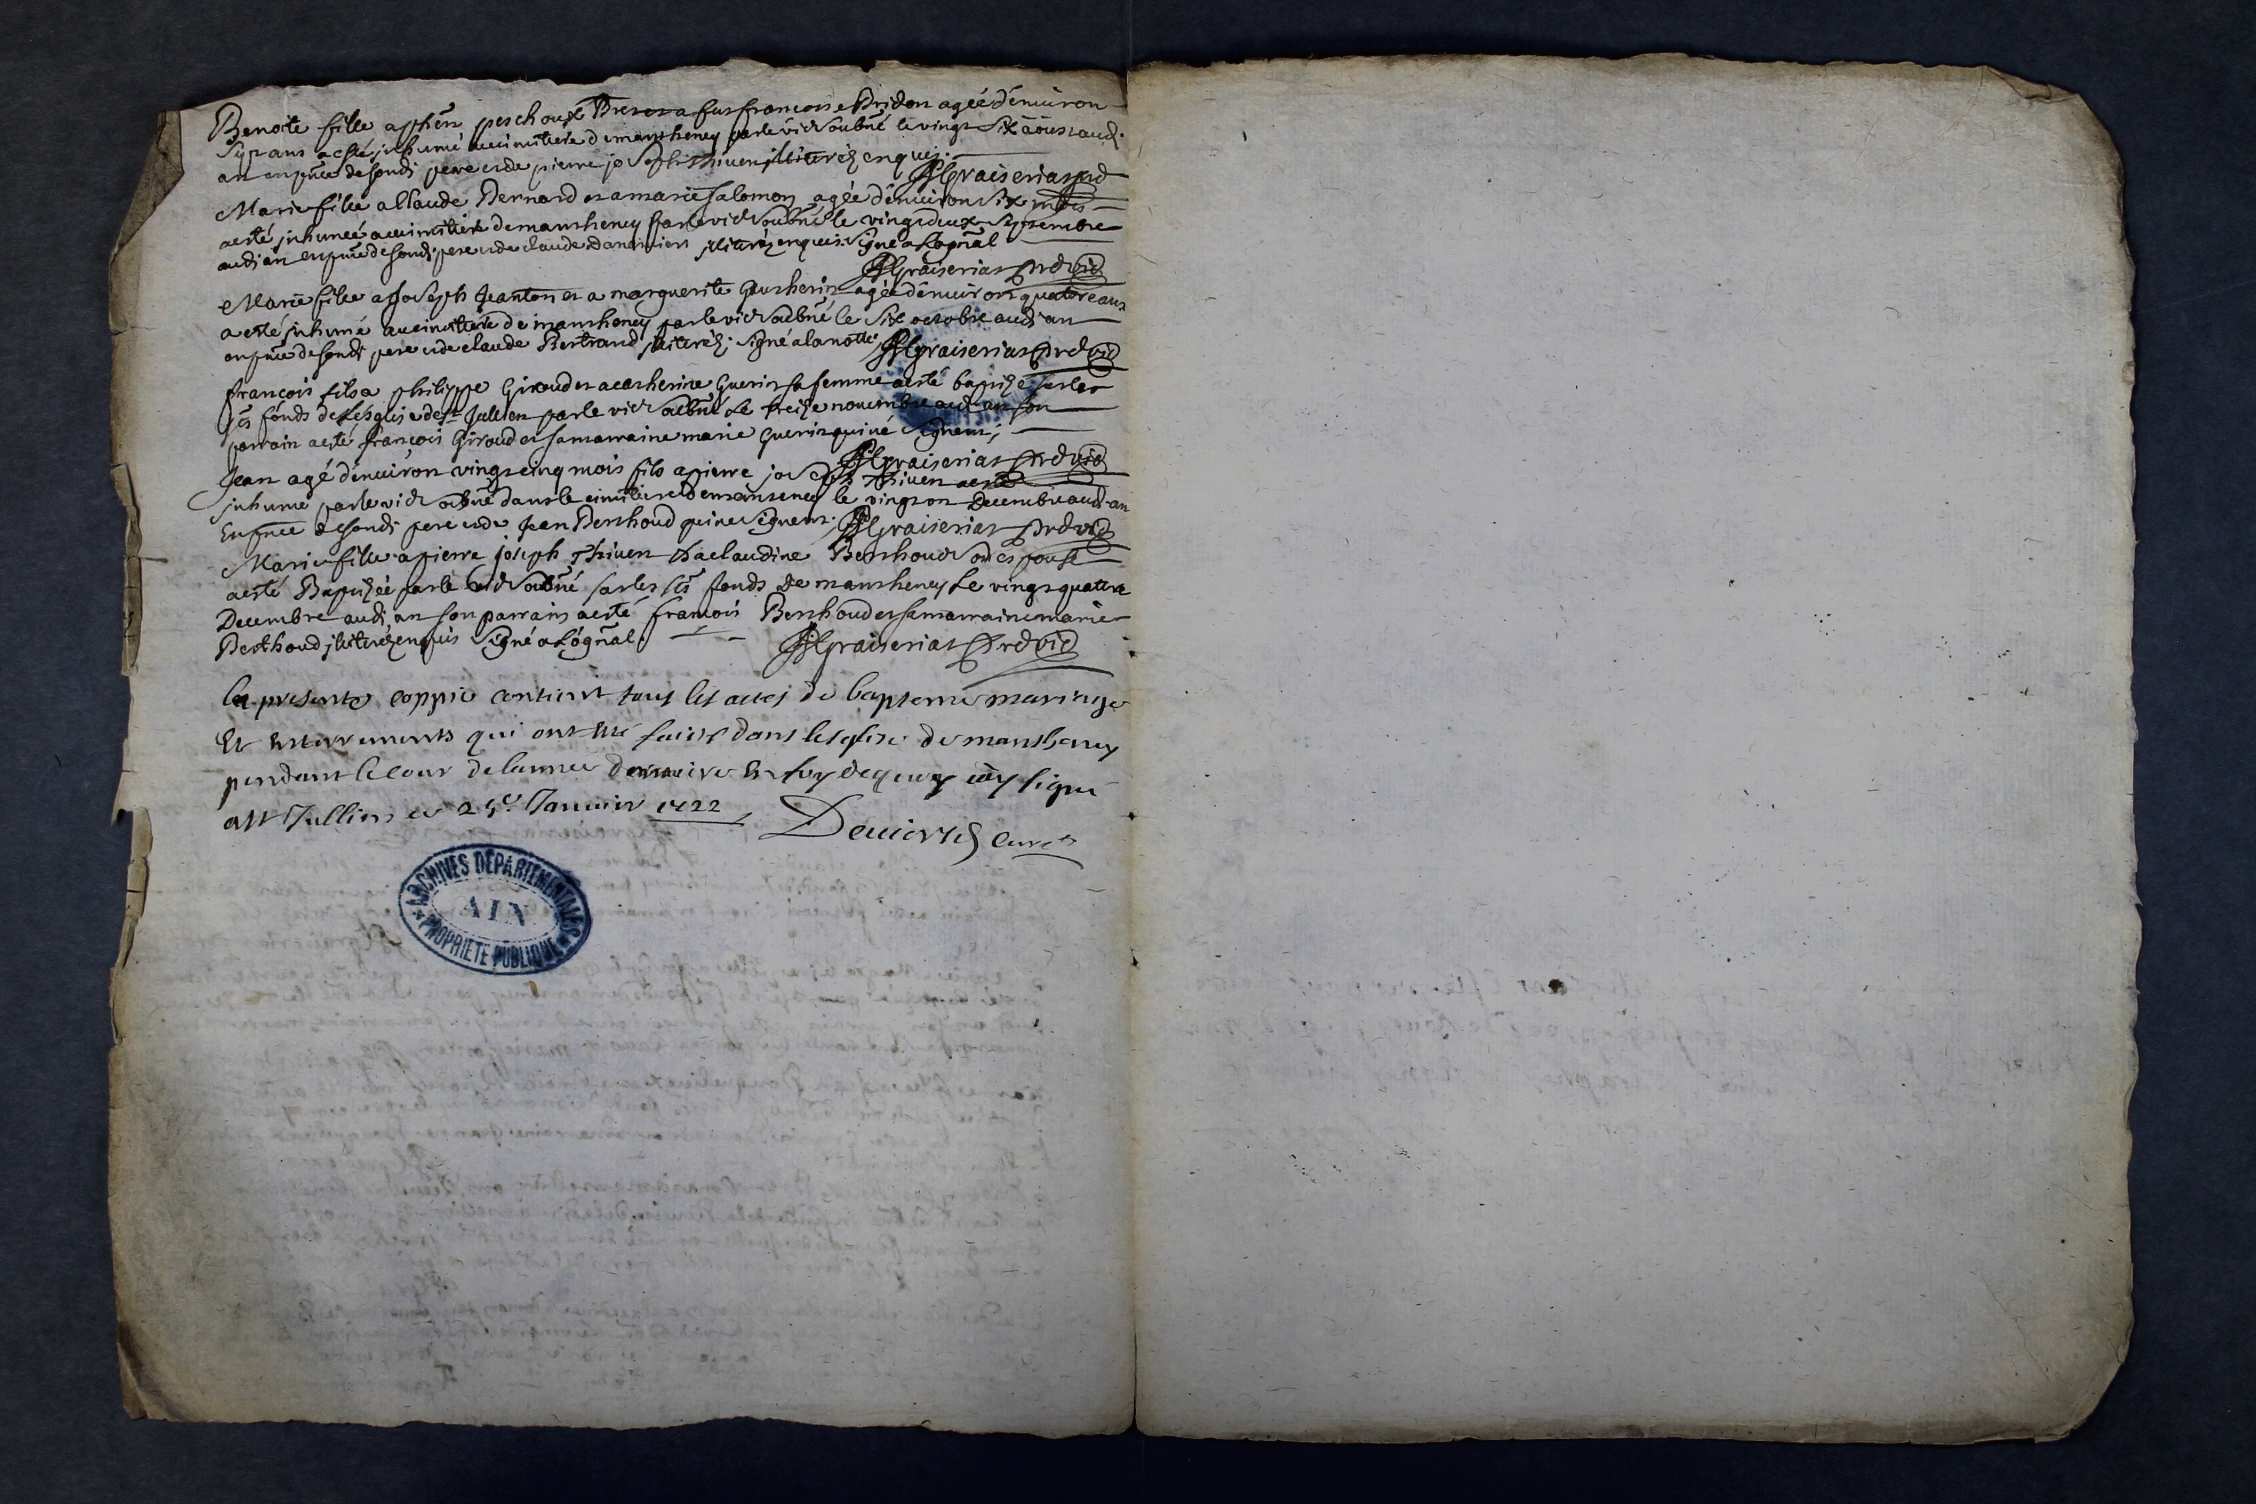 Benoite fille a phen peschoux et a fut francoise Bridon agée d'enuiron
sept ans a esté inhumé au cimitiere de mantheney par le vic. soubné le vingt six aoust aud.
an en pnce de sondi pere et de pierre joseph thiuent illiteréz enquis.
Marie fille a Claude Bernard et a marie salomon agée d'enuiron six mois
a esté inhumée au cimitiere de mantheney par le vic soubné le vingt deux septembre
audi an en pnce de sondi pere et de claude illiteréz enquis. signé a l'ognal
Graiserias Prd vic
Marie fille a Joseph Jeanton et a marguerite gautherin agée d'enuiron quatre ans
a esté inhumé au cimitiere de mantheney par le vic soubné le six octobre audi an
en pnce de sondi pere et de claude Bertrand illiteréz signé a la notte
Graiserias Prd vic
françois fils a philippe Giroud et a catherine Guerin sa femme a esté baptizé sur les
sts fonds de l'esglise de st Jullien par le vic soubné le treize nouembre aud. an son
parrain a esté françois Giroud et sa marraine marie Guerin qui n'é signent;
Graiserias Prd vic
Jean agé d'enuiron vingt cinq mois fils a pierre joseph thiuent a esté
inhumé par le vic soubné dans le cimitiere de manteney le vingt on Decembre aud. an
En pnce de sondi pere et de Jean Berthoud qui ne signent. Graiserias Prd vic
Marie fille a pierre joseph thiuent & a claudine Berthoud son espouse
a esté Baptizée par le vic soubné sur les sts fonds de mantheney Le vingt quattre
Decembre audi an son parrain a esté francois Berthoud et sa marraine marie
Berthoud illiteréz enquis signé a l'ógnal.
Graiserias Prd vic
la presente coppie contient tous les actes de bapteme mariage
Et Enterrements qui ont été faicts dans l'esglise de mantheney
pendant le cour de lannée derniere En foy de quoy iay signé
a St Jullien ce 25e Januier 1722
Deuiervies curé
ARCHIVES DÉPARTEMENTALES
AIN
PROPRIÉTÉ PUBLIQUE